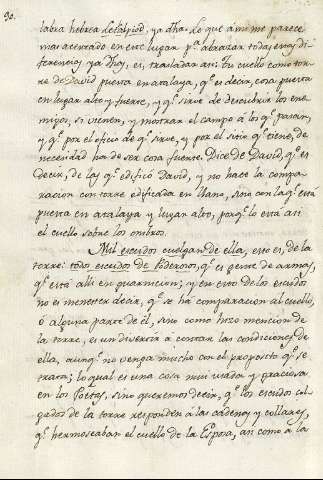 90.
labra hebrea letalpiod, ya dha. Lo que a mi me parece
mas acertado en este lugar pª abrazar todas estas di-
ferencias ya dhas, es, trasladar asi: Tu cuello como torre
de David puesta en atalaya, qᵉ es decir, cosa puesta
en lugar alto y fuerte, y qᵉ sirve de descubrir los ene-
migos, si vienen, y mostrar el campo á los qᵉ pasan,
y qᵉ por el oficio de qᵉ sirve, y por el sitio qᵉ tiene, de
necesidad ha de ser cosa fuerte. Dice de David, qᵉ es
decir, de las qᵉ edificó David, y no hace la compa-
racion con torre edificada en llano, sino con la qᵉ está
puesta en atalaya y lugar alto, porqᵉ lo está asi
el cuello sobre los ombros.
Mil escudos cuelgan de ella, esto es, de la
torre: todo escudos de Poderosos, qᵉ es gente de armas,
qᵉ está alli en guarnicion; y en esto de los escudos
no es menester decir, qᵉ se há comparacion al cuello,
ó alguna parte de él, sino como hizo mencion de
la torre, se divertió a contar las condiciones de
ella, aunqᵉ no venga mucho con el proposito qᵉ se
trata; lo qual es una cosa mui usada y graciosa
en los Poetas, sino queremos decir, qᵉ los escudos col-
gados de la torre responden á las cadenas y collares,
qᵉ hermoseaban el cuello de la Esposa, asi como á la